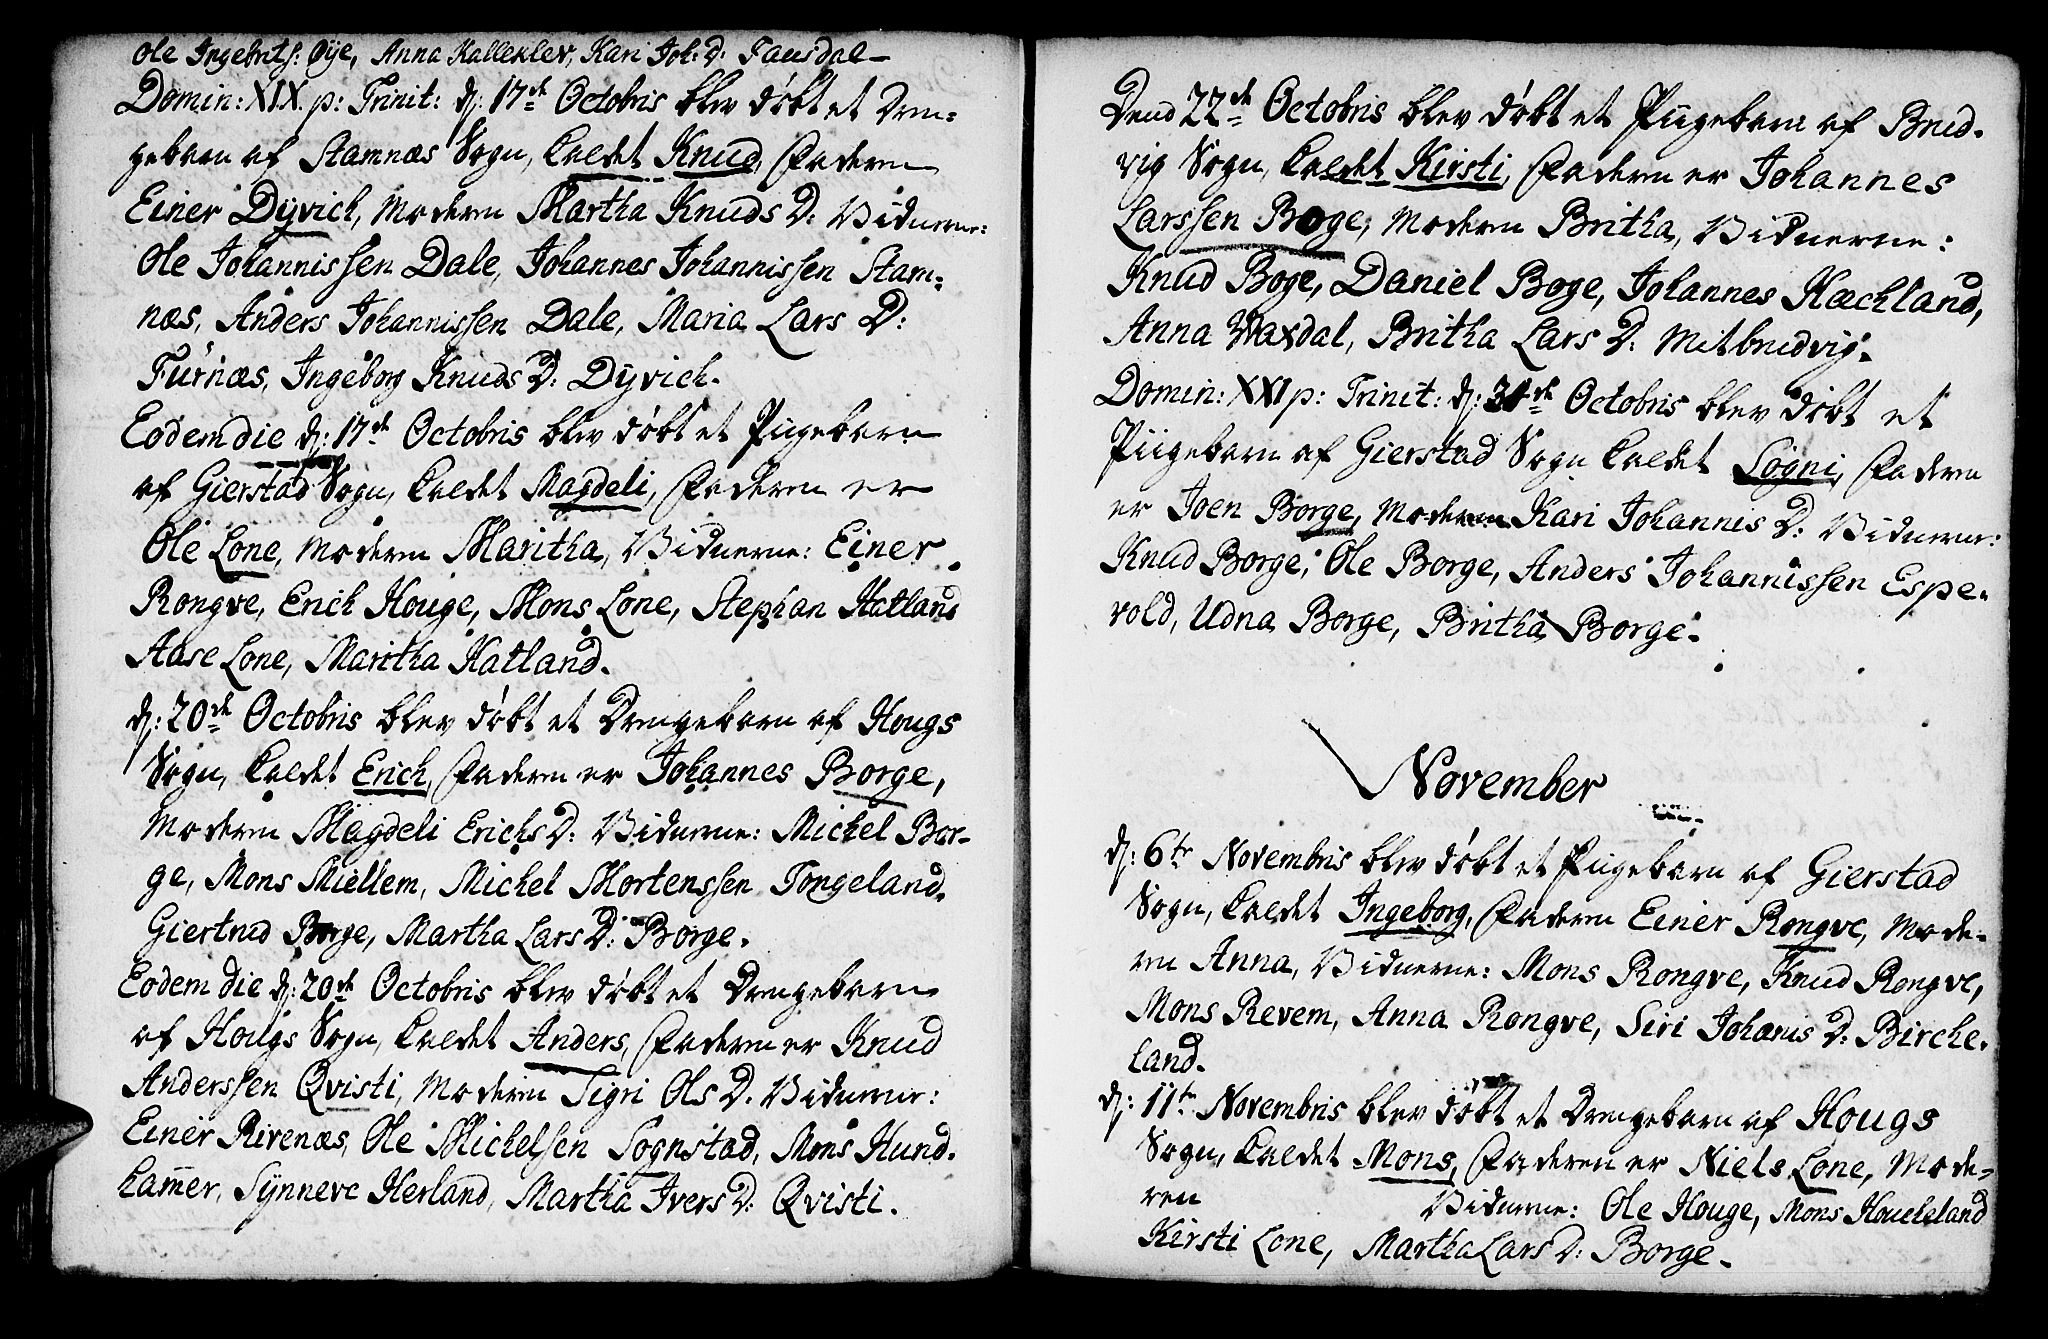 Ole Ingebrits: Øÿe, Anna Kalleklev, Kari Joh: D: Fausdal
Domin: XIX. p: Trinit: dj: 17de Octobris blev døbt et Dren-
gebarn af Stamnæs Sogn, kaldet Knud, Faderen
Einer Dÿvich, Moderen Martha Knuds D: Vidnerne:
Ole Johannissen Dale, Johannes Johannissen Stam-
næs, Anders Johannissen Dale, Maria Lars D:
Furnæs, Ingeborg Knuds D: Dÿvich.
Eodem die dj: 17de Octobris blev døbt et Pigebarn
af Gierstad Sogn, kaldet Magdeli, Faderen er
Ole Lone, Moderen Maritha, Vidnerne: Einer
Rongve, Erich Houge, Mons Lone, Stephan Hatland
Aase Lone, Maritha Hatland.
dj: 20de Octobris blev døbt et Drengebarn af Hougs
Sogn, kaldet Erich, Faderen er Johannes Borge,
Moderen Magdeli Erichs D: Vidnerne: Michel Bor-
ge, Mons Miellem, Michel Mortenssen Tongeland.
Giertrud Borge, Martha Lars D: Borge.
Eodem die dj: 20de Octobris blev døbt et Drengebarn
af Hougs Sogn, kaldet Anders, Faderen er Knud
Anderssen Qvisti, Moderen Sigri Ols D. Vidnerne:
Einer Rivenæs, Ole Michelsen Sognstad, Mons Hund-
ham̃er, Sÿnneve Herland, Martha Ivers D: Qvisti.
Dend 22de Octobris blev døbt et Piigebarn af Brud-
vig Sogn, kaldet Kirsti, Faderen er Johannes
Larssen Boge, Moderen Britha, Vidnerne:
Knud Boge, Daniel Boge, Johannes Hæchland,
Anna Waxdal, Britha Lars D: Mitbrudvig.
Domin: XXI p: Trinit: dj: 31de Octobris blev døbt et
Piigebarn af Gierstad Sogn kaldet Sogni, Faderen
er Joen Borge, Moderen Kari Johannis D: Vidnerne:
Knud Borge, Ole Borge, Anders Johannissen Espe-
vold, Udna Borge, Britha Borge.
November
dj: 6te Novembris blev døbt et Pigebarn af Gierstad
Sogn, kaldet Ingeborg, Faderen Einer Rongve, Mode-
ren Anna, Vidnerne: Mons Rongve, Knud Rongve,
Mons Revem, Anna Rongve, Siri Johanis D: Birche-
land.
dj: 11te Novembris blev døbt et Drengebarn af Hougs
Sogn, kaldet Mons, Faderen er Niels Lone, Mode-
ren Vidnerne: Ole Houge, Mons Houcheland
Kirsti Lone, Martha Lars D: Borge.